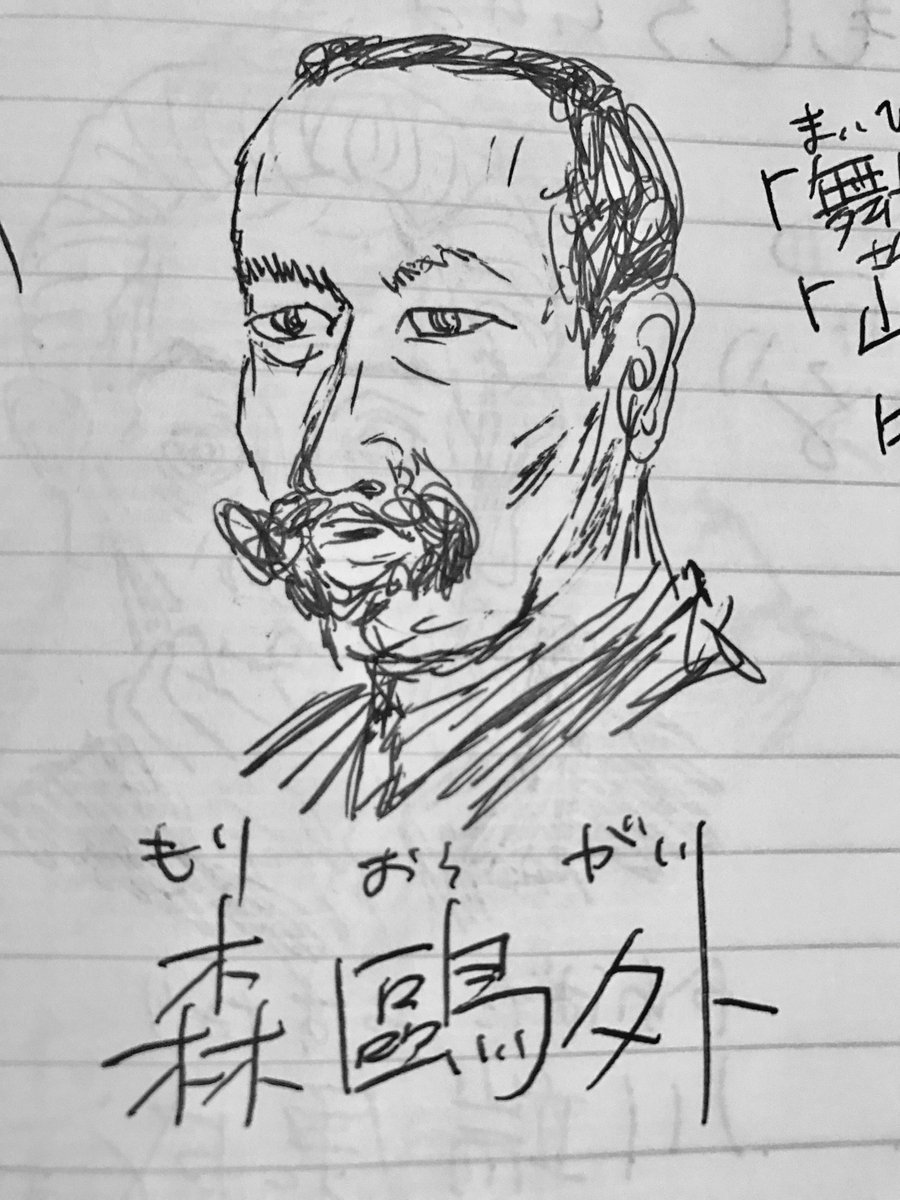 まいひ
「舞
「山
もり おう がい
森鷗外